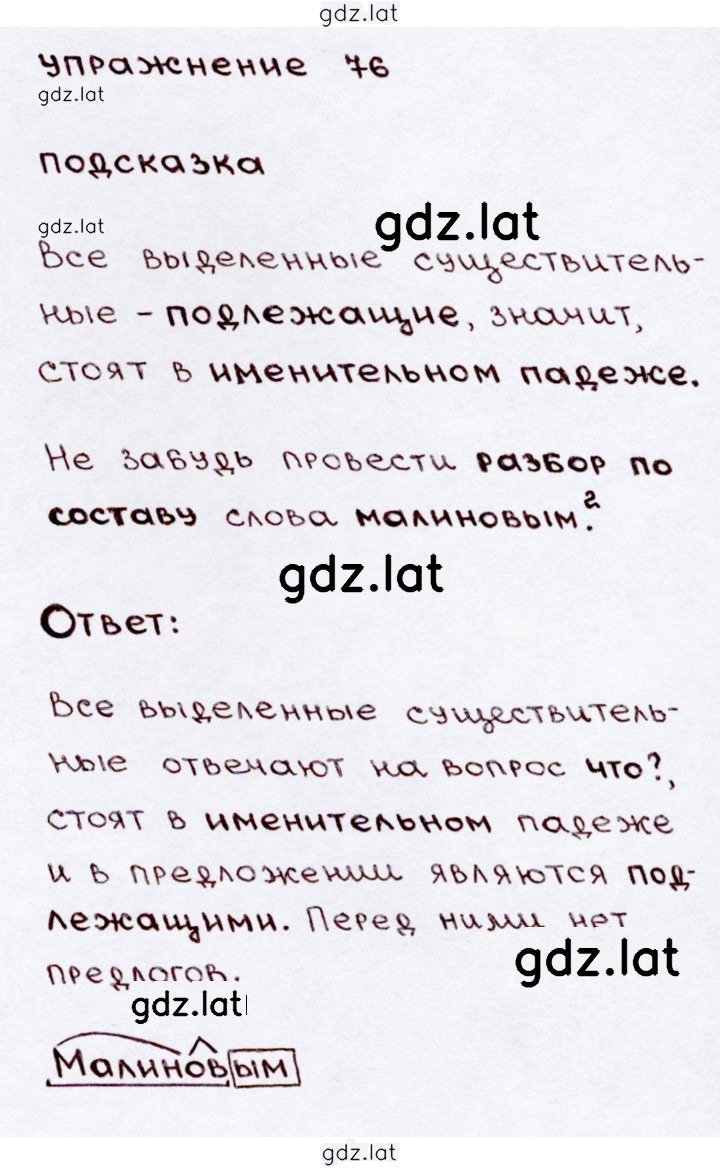 gdz.lat
упражнение 76
gdz.lat
подсказка
gdz.lat
gdz.lat
Все выделенные существитель-
ные - подлежащие, значит,
стоят в именительном падеже.
Не забудь провести разбор по
составу слова малиновым.²
gdz.lat
Ответ:
Все выделенные существитель-
ные отвечают на вопрос что?,
стоят в именительном падеже
и в предложении являются под-
лежащими. Перед ними нет
gdz.lat
предлогов.
gdz.lat
Малиновым
gdz.lat